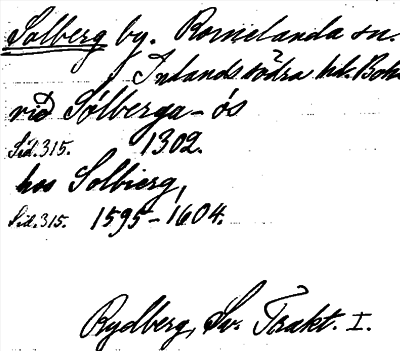 Solberg by. Romelanda sn.
Inlands södra hd. Boh
við Sólberga-ós
Sid.315. 1302.
hos Solbierg,
Sid.315. 1595-1604.
Rydberg, Sv. Trakt. I.